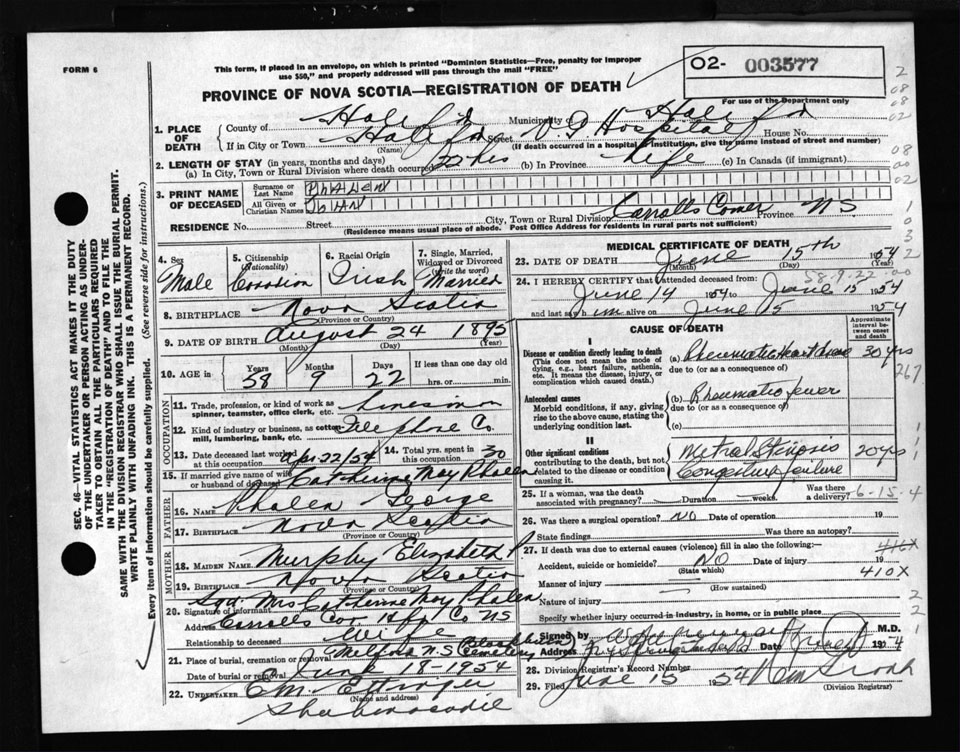 FORM 6
This form, if placed in an envelope, on which is printed "Dominion Statistics—Free, penalty for improper
use $50," and properly addressed will pass through the mail "FREE"
O2- 003577
For use of the Department only
PROVINCE OF NOVA SCOTIA—REGISTRATION OF DEATH
1. PLACE OF DEATH
County of Halifax Municipality of Halifax
If in City or Town Halifax (Name) Street V G Hospital House No.
(If death occurred in a hospital or institution, give the name instead of street and number)
2. LENGTH OF STAY (in years, months and days)
(a) In City, Town or Rural Division where death occurred 22 hrs (b) In Province Life (c) In Canada (if immigrant)
3. PRINT NAME OF DECEASED
Surname or Last Name PHALEN
All Given or Christian Names
RESIDENCE No. Street City, Town or Rural Division Carrolls Corner Province N.S.
(Residence means usual place of abode. Post Office Address for residents in rural parts not sufficient)
4. Sex Male
5. Citizenship (Nationality) Canadian
6. Racial Origin Irish
7. Single, Married, Widowed or Divorced (write the word) Married
8. BIRTHPLACE Nova Scotia
(Province or Country)
9. DATE OF BIRTH August 24 1895
(Month) (Day) (Year)
10. AGE in Years 58 Months 9 Days 22 If less than one day old
hrs. or min.
OCCUPATION
11. Trade, profession, or kind of work as spinner, teamster, office clerk, etc. Linesman
12. Kind of industry or business, as cotton mill, lumbering, bank, etc. Telephone Co.
13. Date deceased last worked at this occupation 22/54 14. Total yrs. spent in this occupation 30
15. If married give name of wife or husband of deceased Catherine May Phalen
FATHER
16. NAME Phalen George
17. BIRTHPLACE Nova Scotia
(Province or Country)
MOTHER
18. MAIDEN NAME Murphy Elizabeth
19. BIRTHPLACE Nova Scotia
(Province or Country)
20. Signature of informant Mrs Catherine May Phalen
Address Carrolls Cor Hfx Co NS
Relationship to deceased Wife
21. Place of burial, cremation or removal Milford N.S. Cemetery
Date of burial or removal June 18-1954
22. UNDERTAKER E M Ettinger
Shubenacadie
MEDICAL CERTIFICATE OF DEATH
23. DATE OF DEATH June 15th 1954
(Month) (Day) (Year)
58.9.22-00
24. I HEREBY CERTIFY that I attended deceased from
June 14 1954 to June 15 1954
and last saw him alive on June 15 1954
CAUSE OF DEATH
Approximate interval between onset and death
I
Disease or condition directly leading to death
(This does not mean the mode of dying, e.g., heart failure, asthenia, etc. It means the disease, injury, or complication which caused death.)
(a) Rheumatic Heart disease 30 yrs
due to (or as a consequence of)
Antecedent causes
Morbid conditions, if any, giving rise to the above cause, stating the underlying condition last.
(b) Rheumatic fever
due to (or as a consequence of)
(c)
II
Other significant conditions contributing to the death, but not related to the disease or condition causing it.
Mitral Stenosis 20 yrs
Congestive failure
25. If a woman, was the death associated with pregnancy? Duration weeks. Was there a delivery?
6-15-4
26. Was there a surgical operation? NO Date of operation 19
State findings Was there an autopsy?
27. If death was due to external causes (violence) fill in also the following:—
Accident, suicide or homicide? NO Date of injury 19
(State which)
416X
410X
Manner of injury
(How sustained)
Nature of injury
Specify whether injury occurred in industry, in home, or in public place.
Signed by M.D.
Address Date 1954
28. Division Registrar's Record Number
29. Filed June 15 1954
(Division Registrar)
SEC. 46—VITAL STATISTICS ACT MAKES IT THE DUTY
OF THE UNDERTAKER OR PERSON ACTING AS UNDER-
TAKER TO OBTAIN ALL THE PARTICULARS REQUIRED
IN THE "REGISTRATION OF DEATH" AND TO FILE THE
SAME WITH THE DIVISION REGISTRAR WHO SHALL ISSUE THE BURIAL PERMIT.
WRITE PLAINLY WITH UNFADING INK. THIS IS A PERMANENT RECORD.
Every item of information should be carefully supplied. (See reverse side for instructions.)